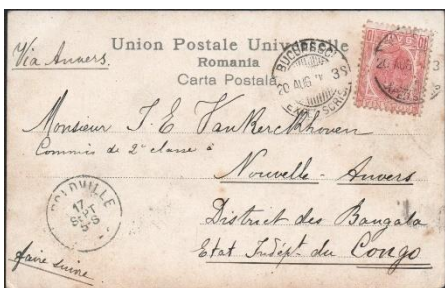 Via Anvers.
Union Postale Universelle
Romania
Carta Postala
BUCURESCI
20 AUG
EXPED. SCRIS.
10
Monsieur J. E. VanKerckhoven
Commis de 2e classe à
Nouvelle-Anvers
District des Bangala
Etat Indépt. du Congo
faire suivre
17
SEPT